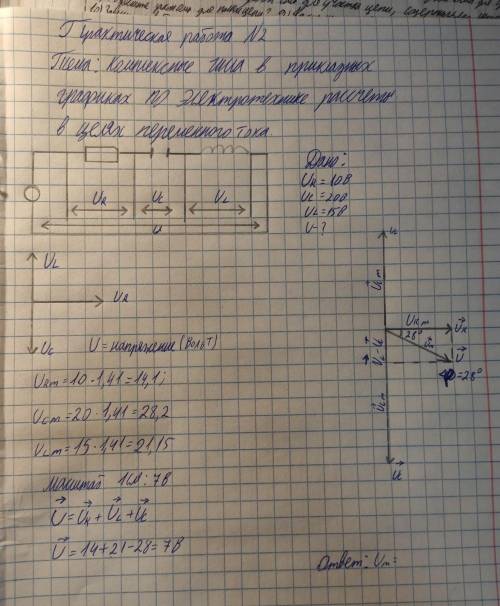 Практическая работа N2
Тема: Комплексные числа в прикладных
графиках по электротехнике рассчеты
в цепях переменного тока
Дано:
UR = 10В
UC = 20В
UL = 15В
U-?
UR UC UL
U
UL
UR
UC
U = напряжение (Вольт)
URm = 10 · 1,41 = 14,1;
UCm = 20 · 1,41 = 28,2
ULm = 15 · 1,41 = 21,15
Масштаб 1см: 7В
U = UR + UL + UC
U = 14 + 21 - 28 = 7В
ULm
URm
UR
28°
Um
UL - UC
U
φ = 28°
UCm
UC
Ответ: Um =